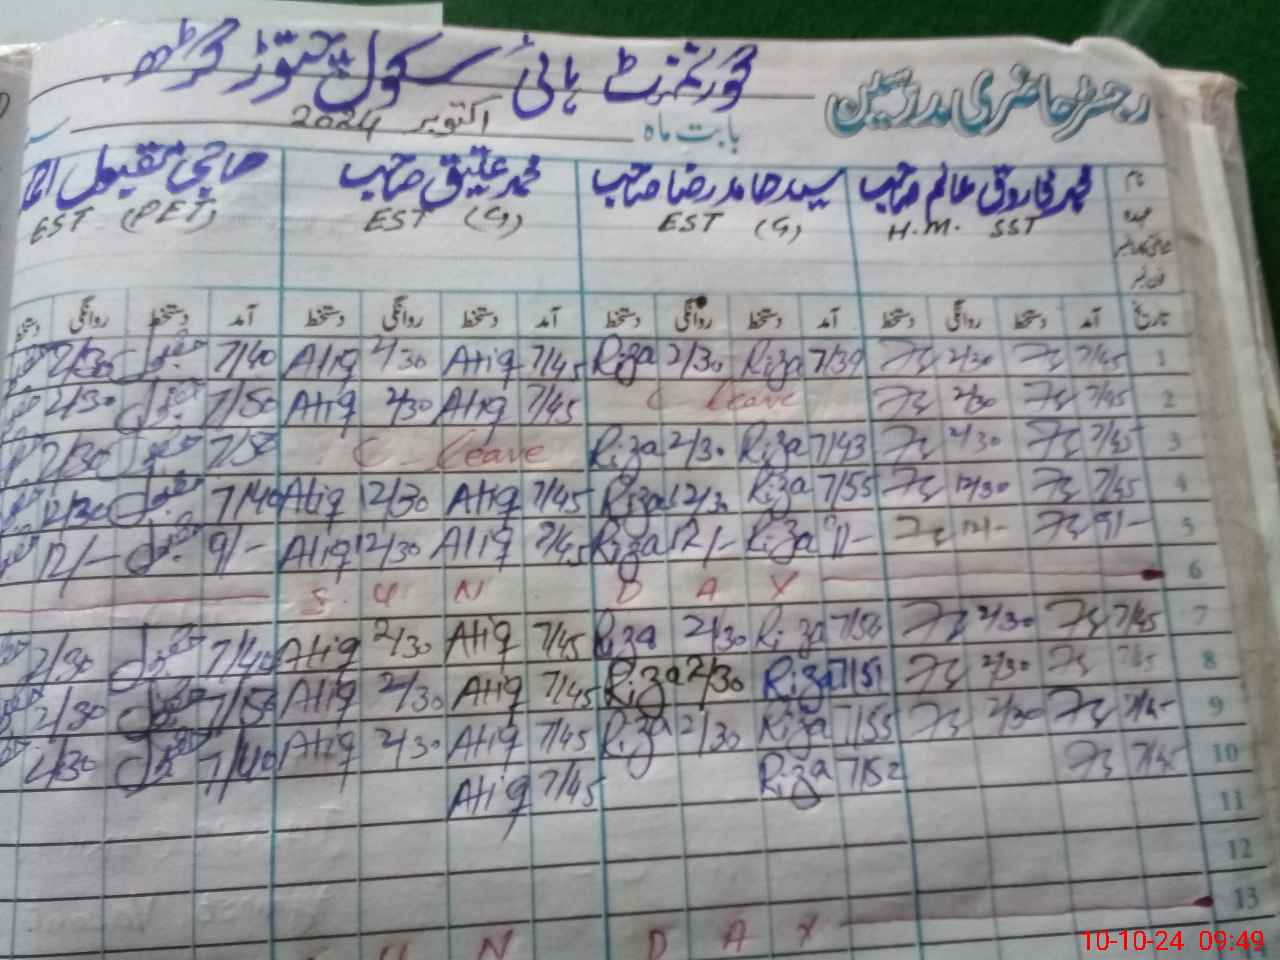 گورنمنٹ ہائی سکول
رجسٹر حاضری مدرسین
بابت ماہ اکتوبر 2024
نام محمد فاروق عالم صاحب سید حامد رضا صاحب محمد عتیق صاحب حاجی مقبول
عہدہ H.M. SST EST (G) EST (G) EST (PET)
تاریخ آمد دستخط روانگی دستخط آمد دستخط روانگی دستخط آمد دستخط روانگی دستخط آمد دستخط روانگی دستخط
1 7/45 2/30 7/39 Riza 2/30 Riza 7/45 Atiq 2/30 Atiq 7/40 مقبول 2/30
2 7/45 2/30 C leave 7/45 Atiq 2/30 Atiq 7/50 مقبول 2/30
3 7/45 2/30 7/43 Riza 2/30 Riza C leave 7/50 مقبول 2/30
4 7/45 12/30 7/55 Riza 12/30 Riza 7/45 Atiq 12/30 Atiq 7/40 مقبول 12/30
5 9/- 12/- Riza 12/- Riza 7/45 Atiq 12/30 Atiq 9/- مقبول 12/-
6 S U N D A Y
7 7/45 2/30 7/56 Riza 2/30 Riza 7/45 Atiq 2/30 Atiq 7/40 مقبول 2/30
8 7/45 2/30 7/51 Riza 2/30 Riza 7/45 Atiq 2/30 Atiq 7/50 مقبول 2/30
9 7/45 2/30 7/55 Riza 2/30 Riza 7/45 Atiq 2/30 Atiq 7/40 مقبول 2/30
10 7/45 7/52 Riza 7/45 Atiq
11
12
13 U N D A Y
10-10-24 09:49